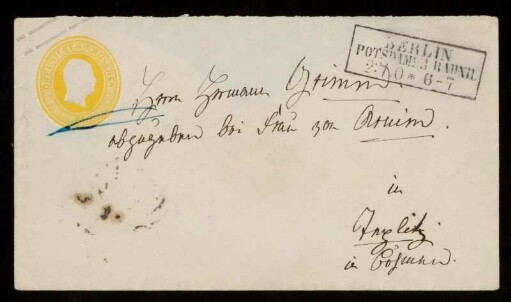 BERLIN
POTSDAMER BAHNH.
6-7
Herrn Hermann Grimm.
abzugeben bei Frau von Arnim.
in
Teplitz
in Böhmen.